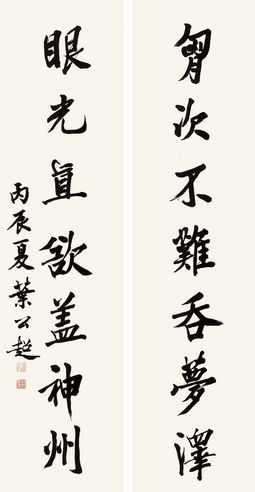 胷次不難吞夢澤
眼光直欲盖神州
丙辰夏葉公超